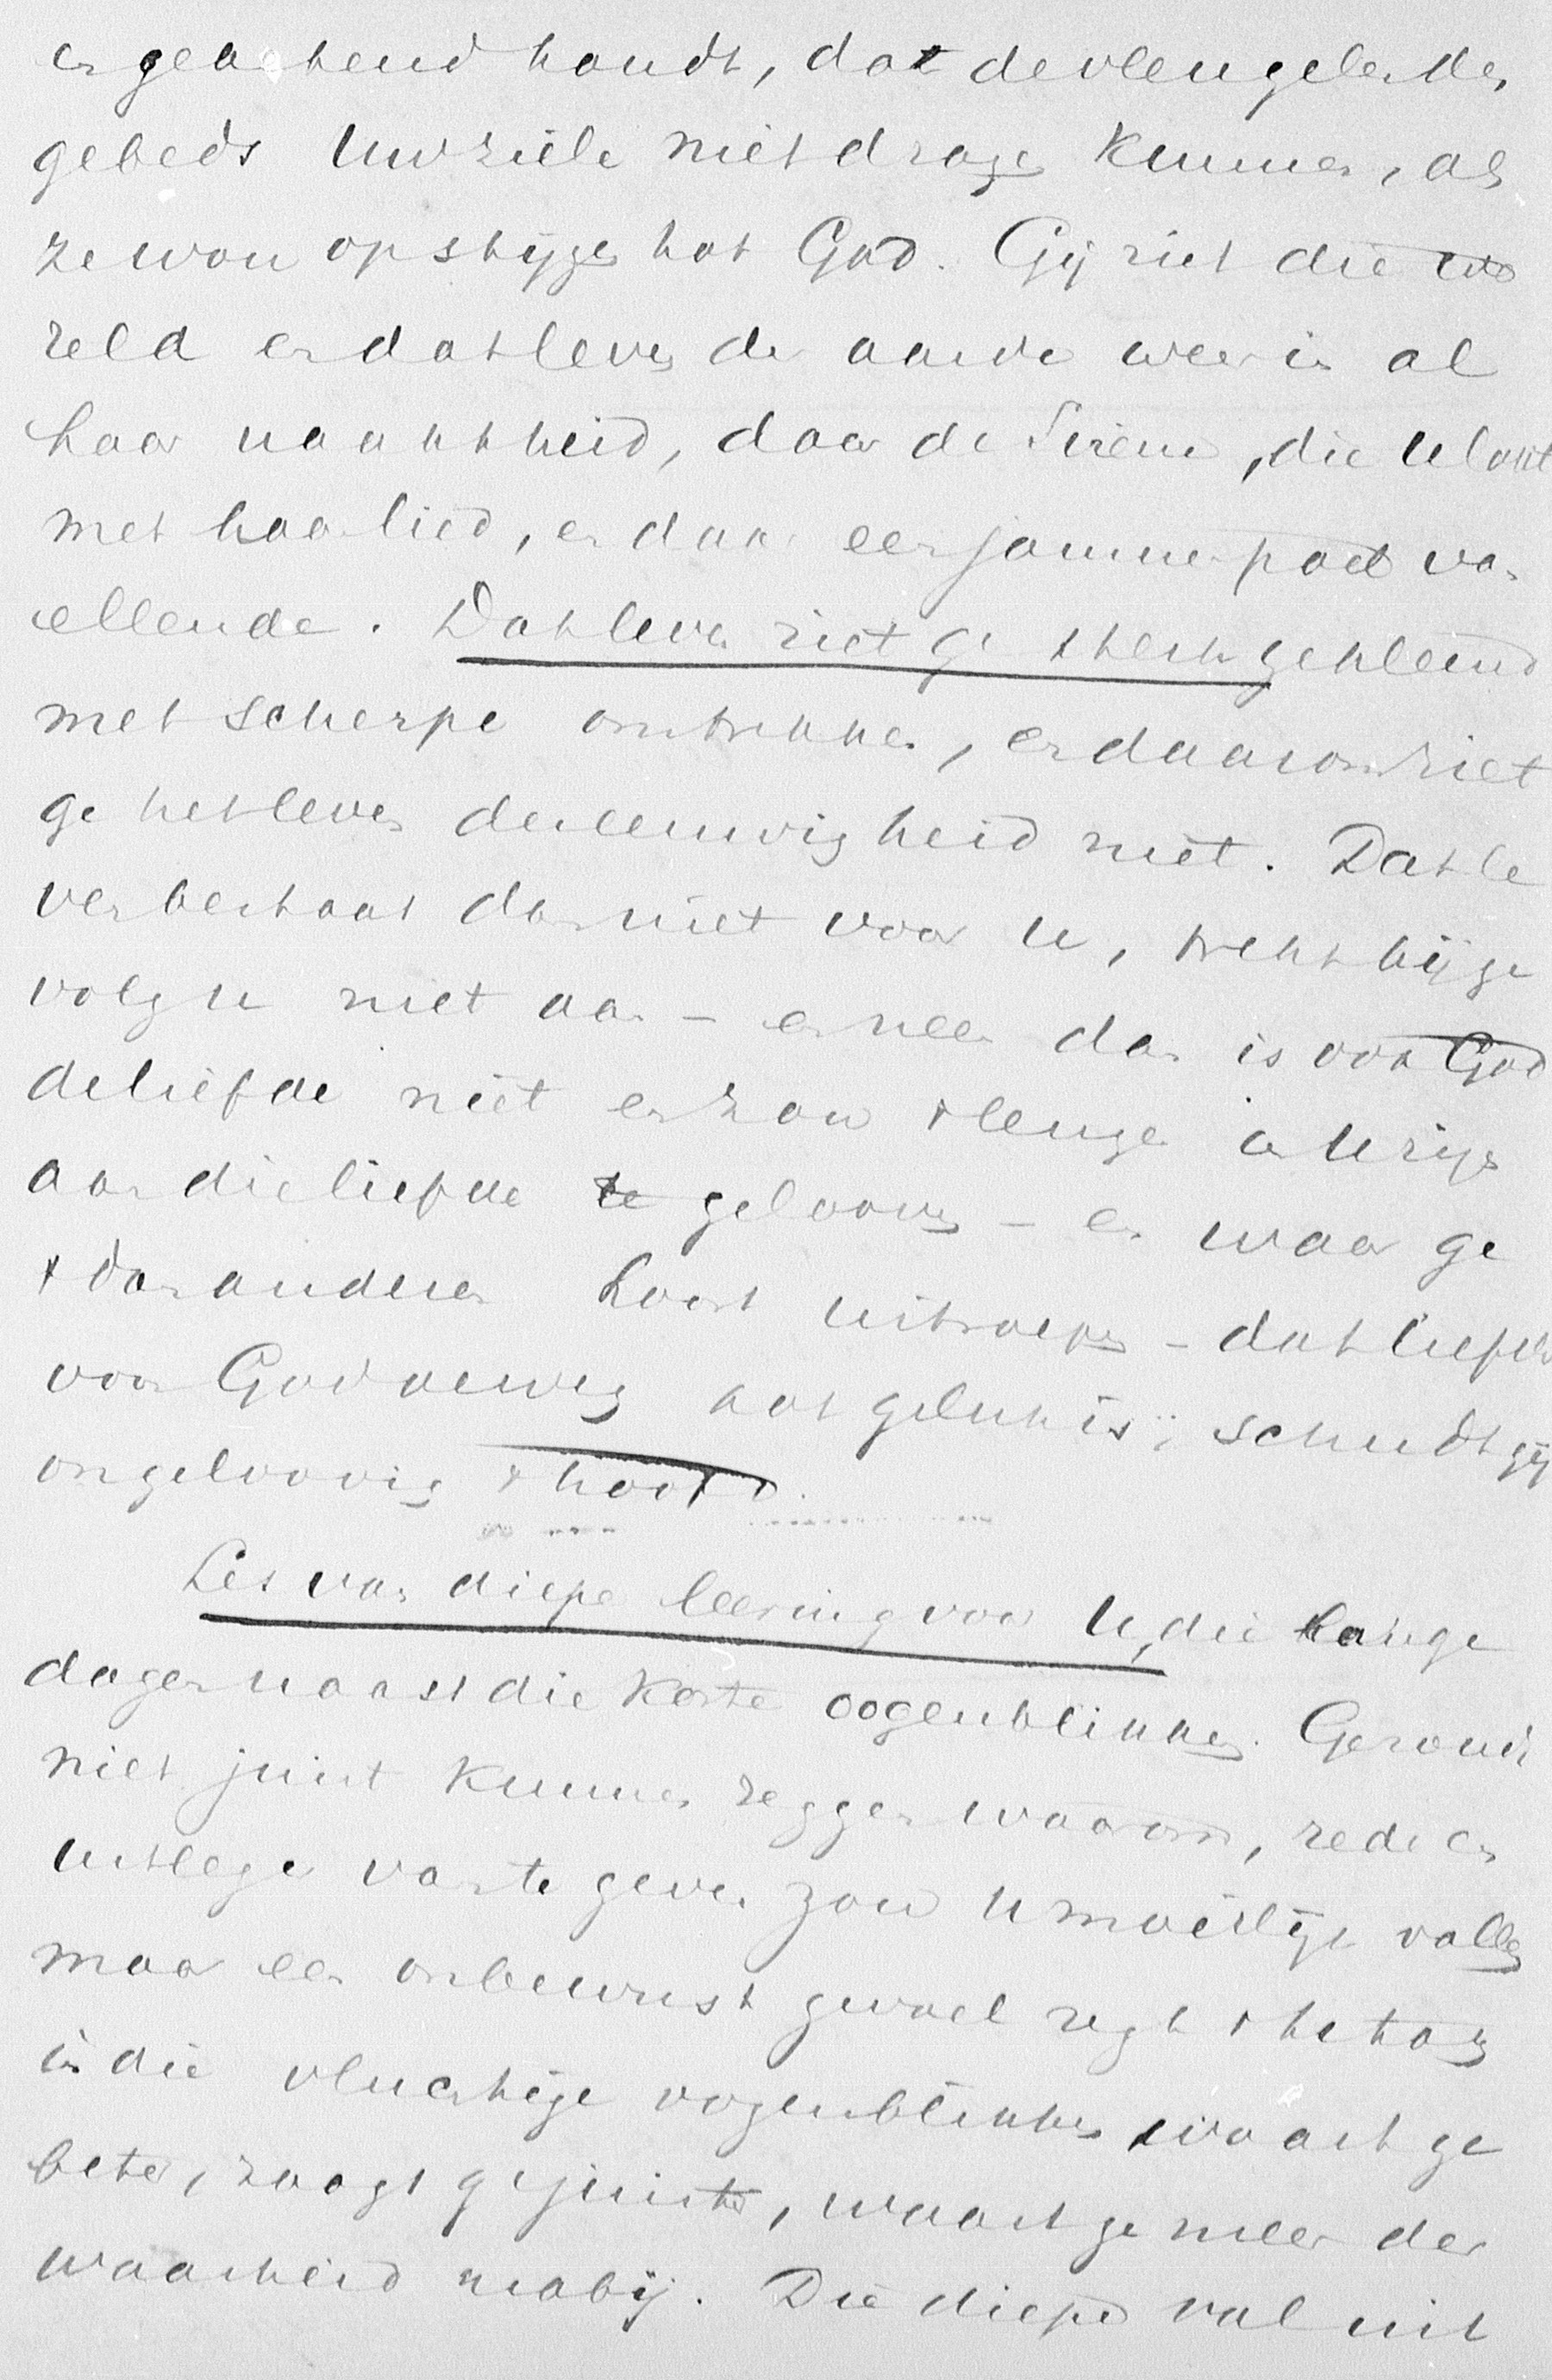 en geankerd houdt, dat de vleugelen des
gebeds Uw ziele niet dragen kunnen, als
ze wou opstijgen tot God. Gij ziet die we
reld en dat leven der aarde weer in al
haar naaktheid, daar de Sirene, die U lokt
met haar lied, en daar een jammerpoel van
ellende. Dat leven ziet ge sterk gekleurd
met scherpe omtrekken, en daarom ziet
ge het leven der eeuwigheid niet. Dat le
ven bestaat dan niet voor U, trekt bijge
volg U niet aan – en neen dan is ook God
de liefde niet en zou 't leugen in U zijn
aan die liefde te gelooven – en waar ge
't dan anderen hoort uitroepen – dat liefde
voor God de weg tot geluk is, schudt gij
ongeloovig 't hoofd.
Les van diepe leering voor U, die lange
dagen naast die korte oogenblikken. Ge zoudt
niet juist kunnen zeggen waarom, rede en
uitleg er van te geven zou U moeilijk vallen
maar een onbewust gevoel zegt 't U toch
in die vluchtige oogenblikken waart ge
beter, zaagt ge juister, waart ge meer der
waarheid nabij. Die diepe val uit